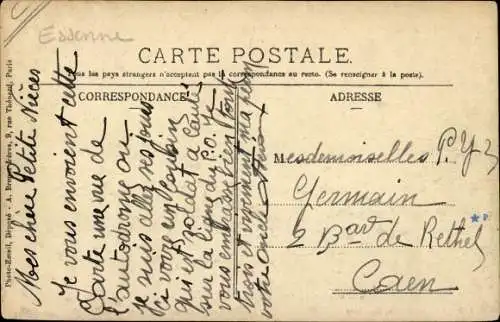 Essonne
CARTE POSTALE
Tous les pays étrangers n'acceptent pas la correspondance au recto. (Se renseigner à la poste).
CORRESPONDANCE
ADRESSE
Photo-Email, Déposé - A. Frères, 9, rue Paris
Mes chère Petite Nièces
Je vous envoient cette
Carte une vue de
l'autodrome ou
je suis allez ses jours
ci voire un Cousin
qui est soldat a Cauté
sur la ligne du P.O. Je
vous embrasse bien toute
trois et vivement ma
votre oncle
Mesdemoiselles P. Y
Germain
2 Bard de Rethel
Caen